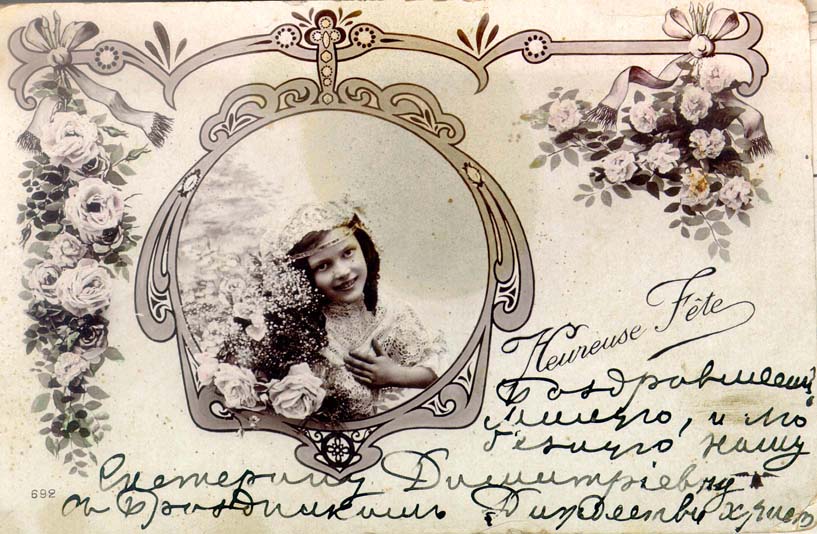 Heureuse Fête
Поздравляемъ
милую, и лю
безную нашу
Екатерину Димитріевну
съ праздникомъ Рождества Христ
692